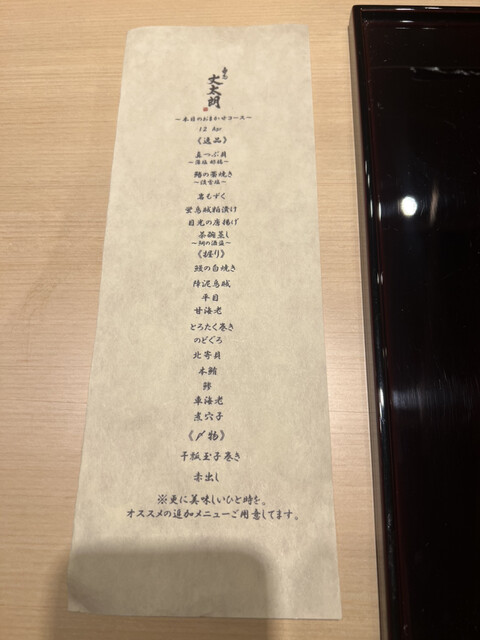 丈太朗
～本日のおまかせコース～
《逸品》
真つぶ貝
鰆の藁焼き
～淡雪塩～
岩もずく
蛍烏賊粕漬け
目光の唐揚げ
茶碗蒸し
～鯛の酒盗～
《握り》
鰻の白焼き
障泥烏賊
平目
甘海老
とろたく巻き
のどぐろ
北寄貝
本鮪
鯵
車海老
煮穴子
《〆物》
干瓢玉子巻き
赤出し
※更に美味しいひと時を。
オススメの追加メニューご用意してます。